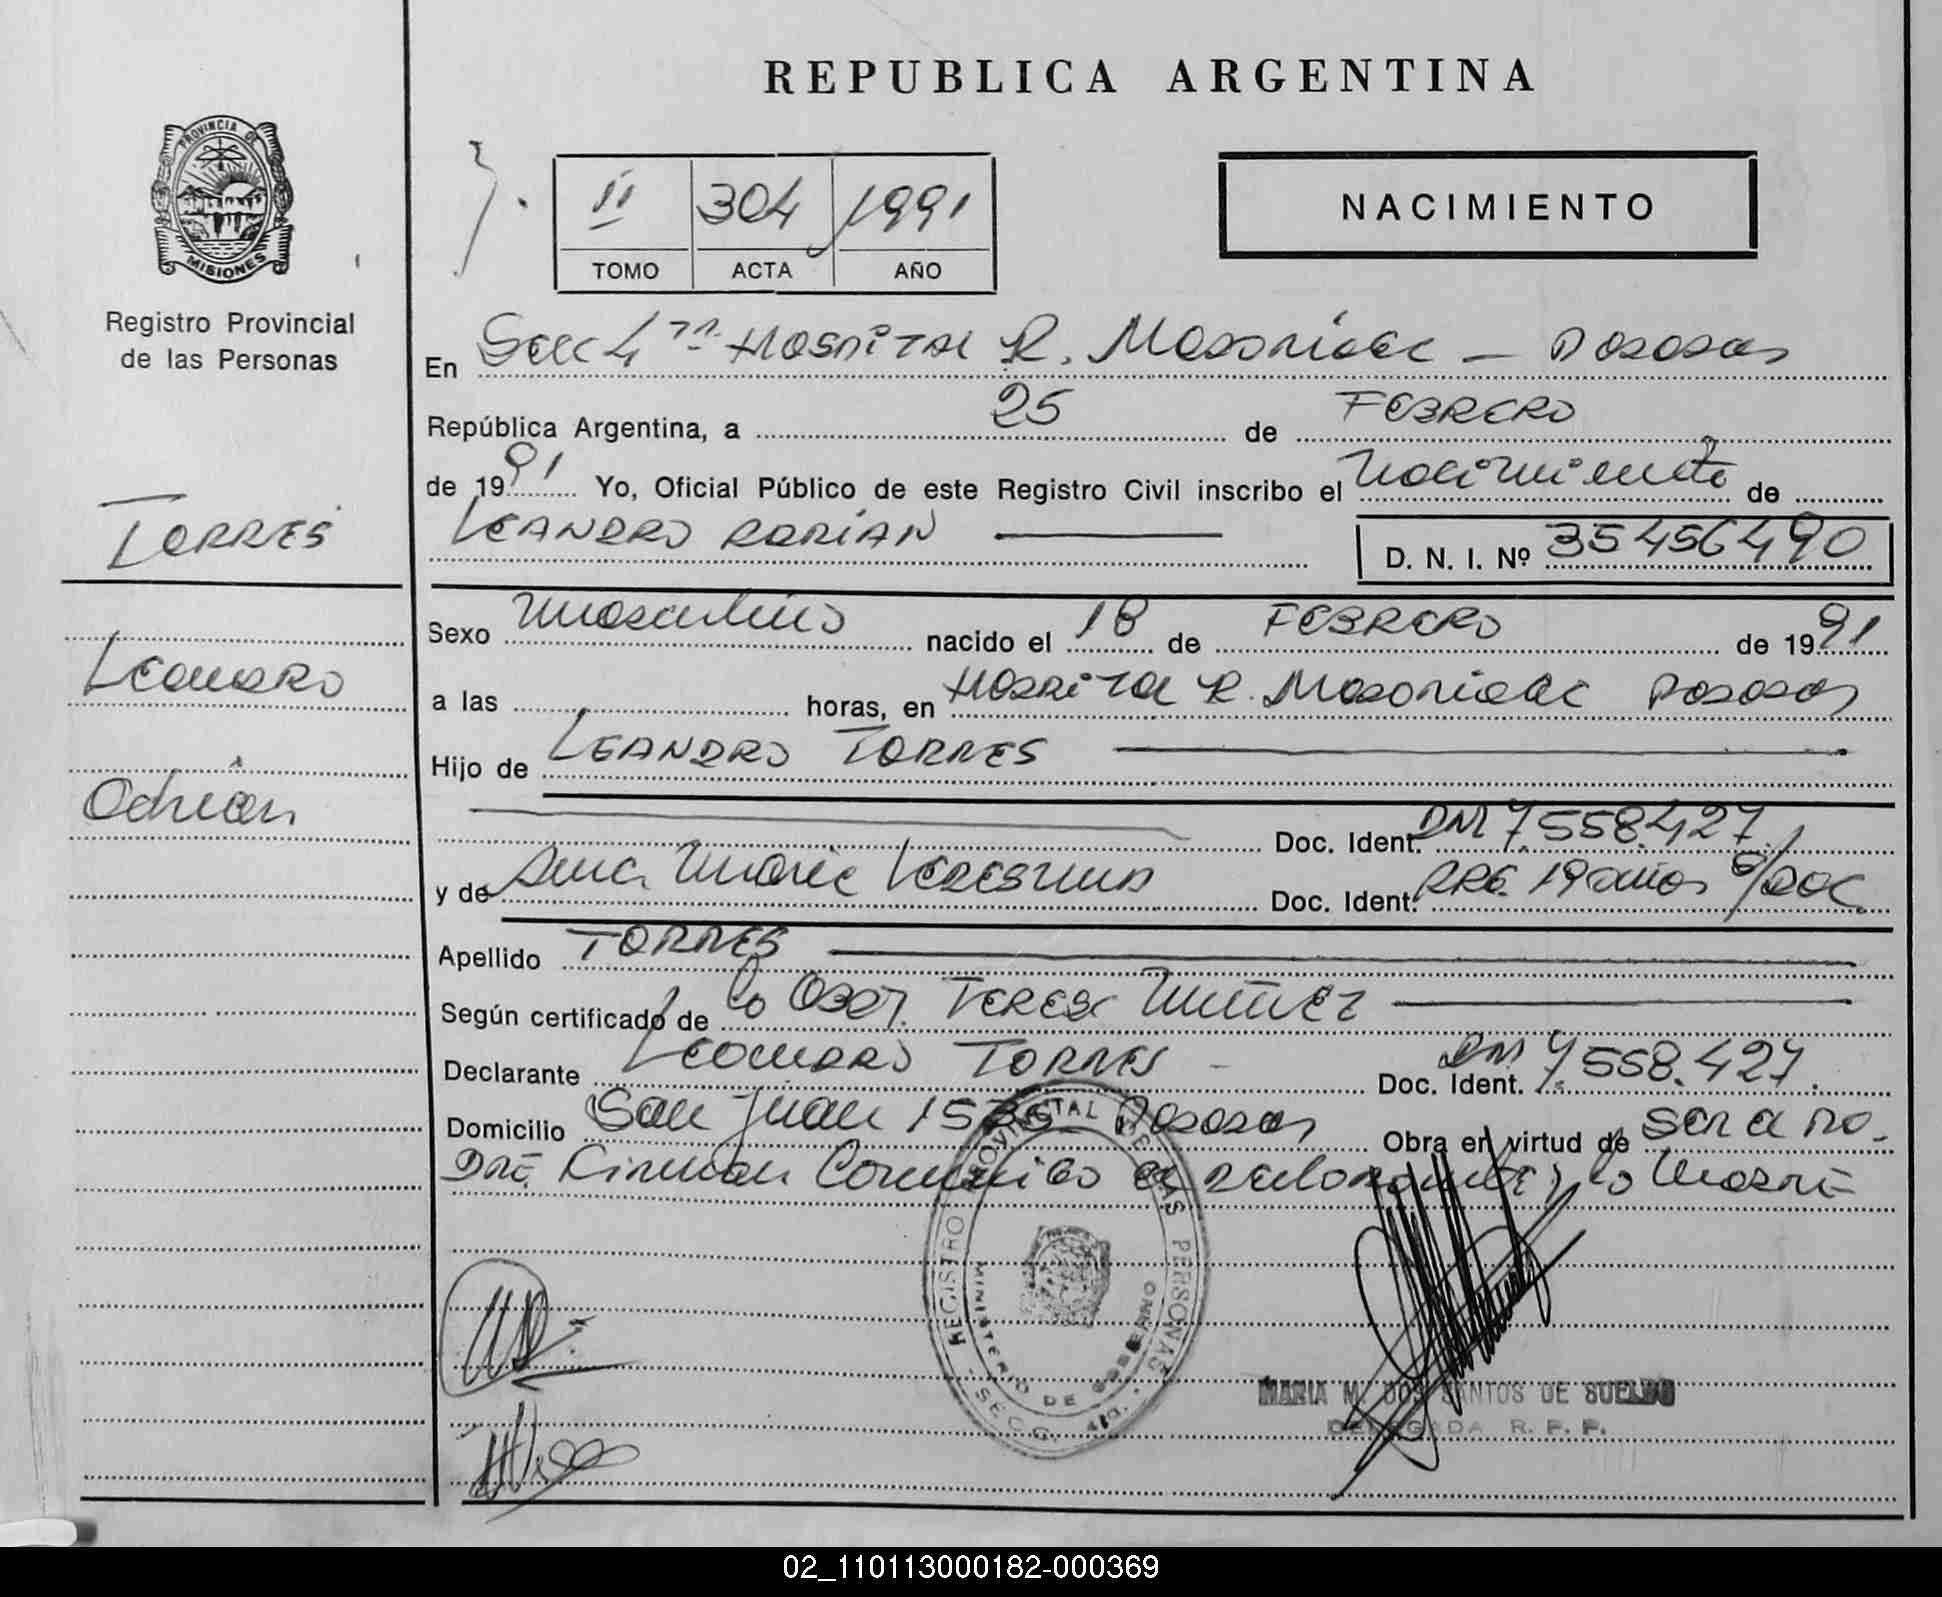 REPUBLICA ARGENTINA
PROVINCIA DE
MISIONES
Registro Provincial
de las Personas
II 304 1991
TOMO ACTA AÑO
NACIMIENTO
En Secc 4ta Hospital R. Madariaga — Posadas
República Argentina, a 25 de FEBRERO
de 1991 Yo, Oficial Público de este Registro Civil inscribo el nacimiento de
LEANDRO ADRIAN D. N. I. Nº 35456490
TORRES
Sexo masculino nacido el 18 de FEBRERO de 1991
Leandro
a las horas, en Hospital R. Madariaga Posadas
Hijo de LEANDRO TORRES
Adrián
Doc. Ident. DNI 7.558.427
y de Ana María Doc. Ident. 19 años s/doc
Apellido TORRES
Según certificado de la Obst. Teresa
Declarante Leandro TORRES Doc. Ident. DNI 7.558.427.
Domicilio San Juan Posadas Obra en virtud de ser el pa-
dre Firman la madre
REGISTRO PROVINCIAL DE LAS PERSONAS
MINISTERIO DE GOBIERNO
SECC. 4ta.
MARIA M. DOS SANTOS DE SUELDO
DELEGADA R. P. P.
02_110113000182-000369